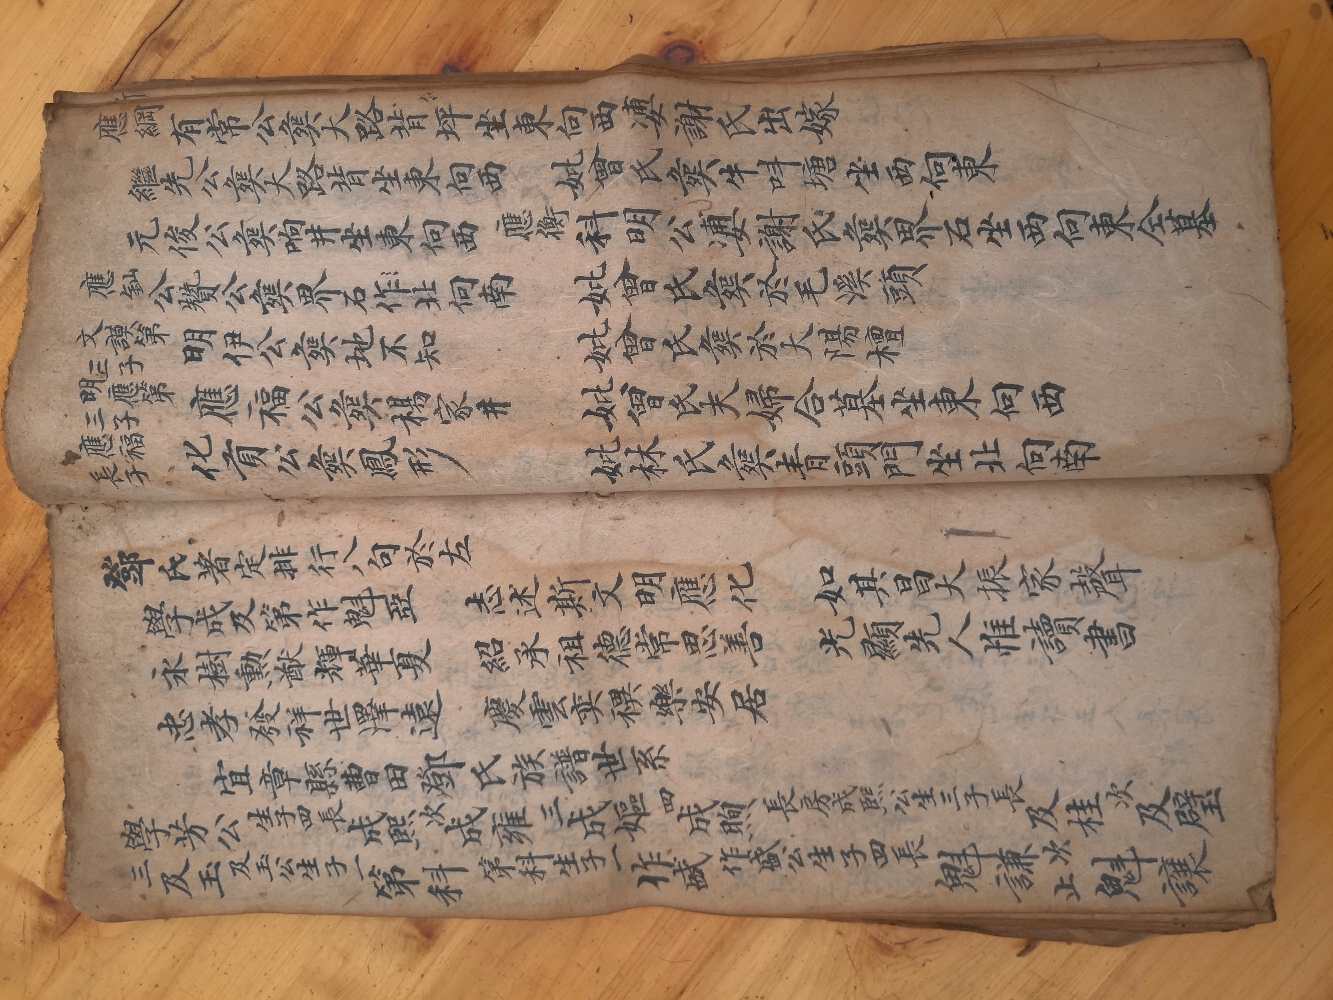 應綱 有常公葬大路背坪坐東向西凄謝氏出嫁
繼先公葬大路背坐東向西 妣曾氏葬牛吽塘坐西向東
元俊公葬响井坐東向西 應衡 科明公凄謝氏葬界石坐西向東仝墓
應釧 公贊公葬界石作北向南 妣曾氏葬於毛溪頭
文謨第三子 明伊公葬地不知 妣曾氏葬於大陽壇
明應第三子 應福公葬楊家井 妣曾氏夫婦合墓坐東向西
應福長子 化貢公葬鳳形 妣林氏葬背頭門坐北向南
鄧氏著定排行八句於左
學成及第作魁亞 志述斯文明應化 如其昌大振家聲
永樹勳猷輝華夏 紹承祖德常思善 光顯先人惟讀書
忠孝發祥世澤遠 慶雲奕禩樂安居
宜章縣曹田鄧氏族譜世系
學芳公生子四長成熙次成雍三成嫗四成煦 長房成熙公生三子長及桂次及壁
三及玉 及玉公生子一第科 第科生子一作盛 作盛公生子四長魁謙止次魁讓